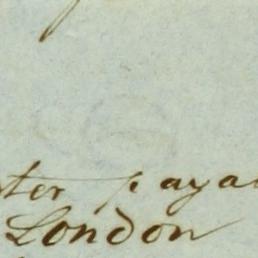 ter paya
London